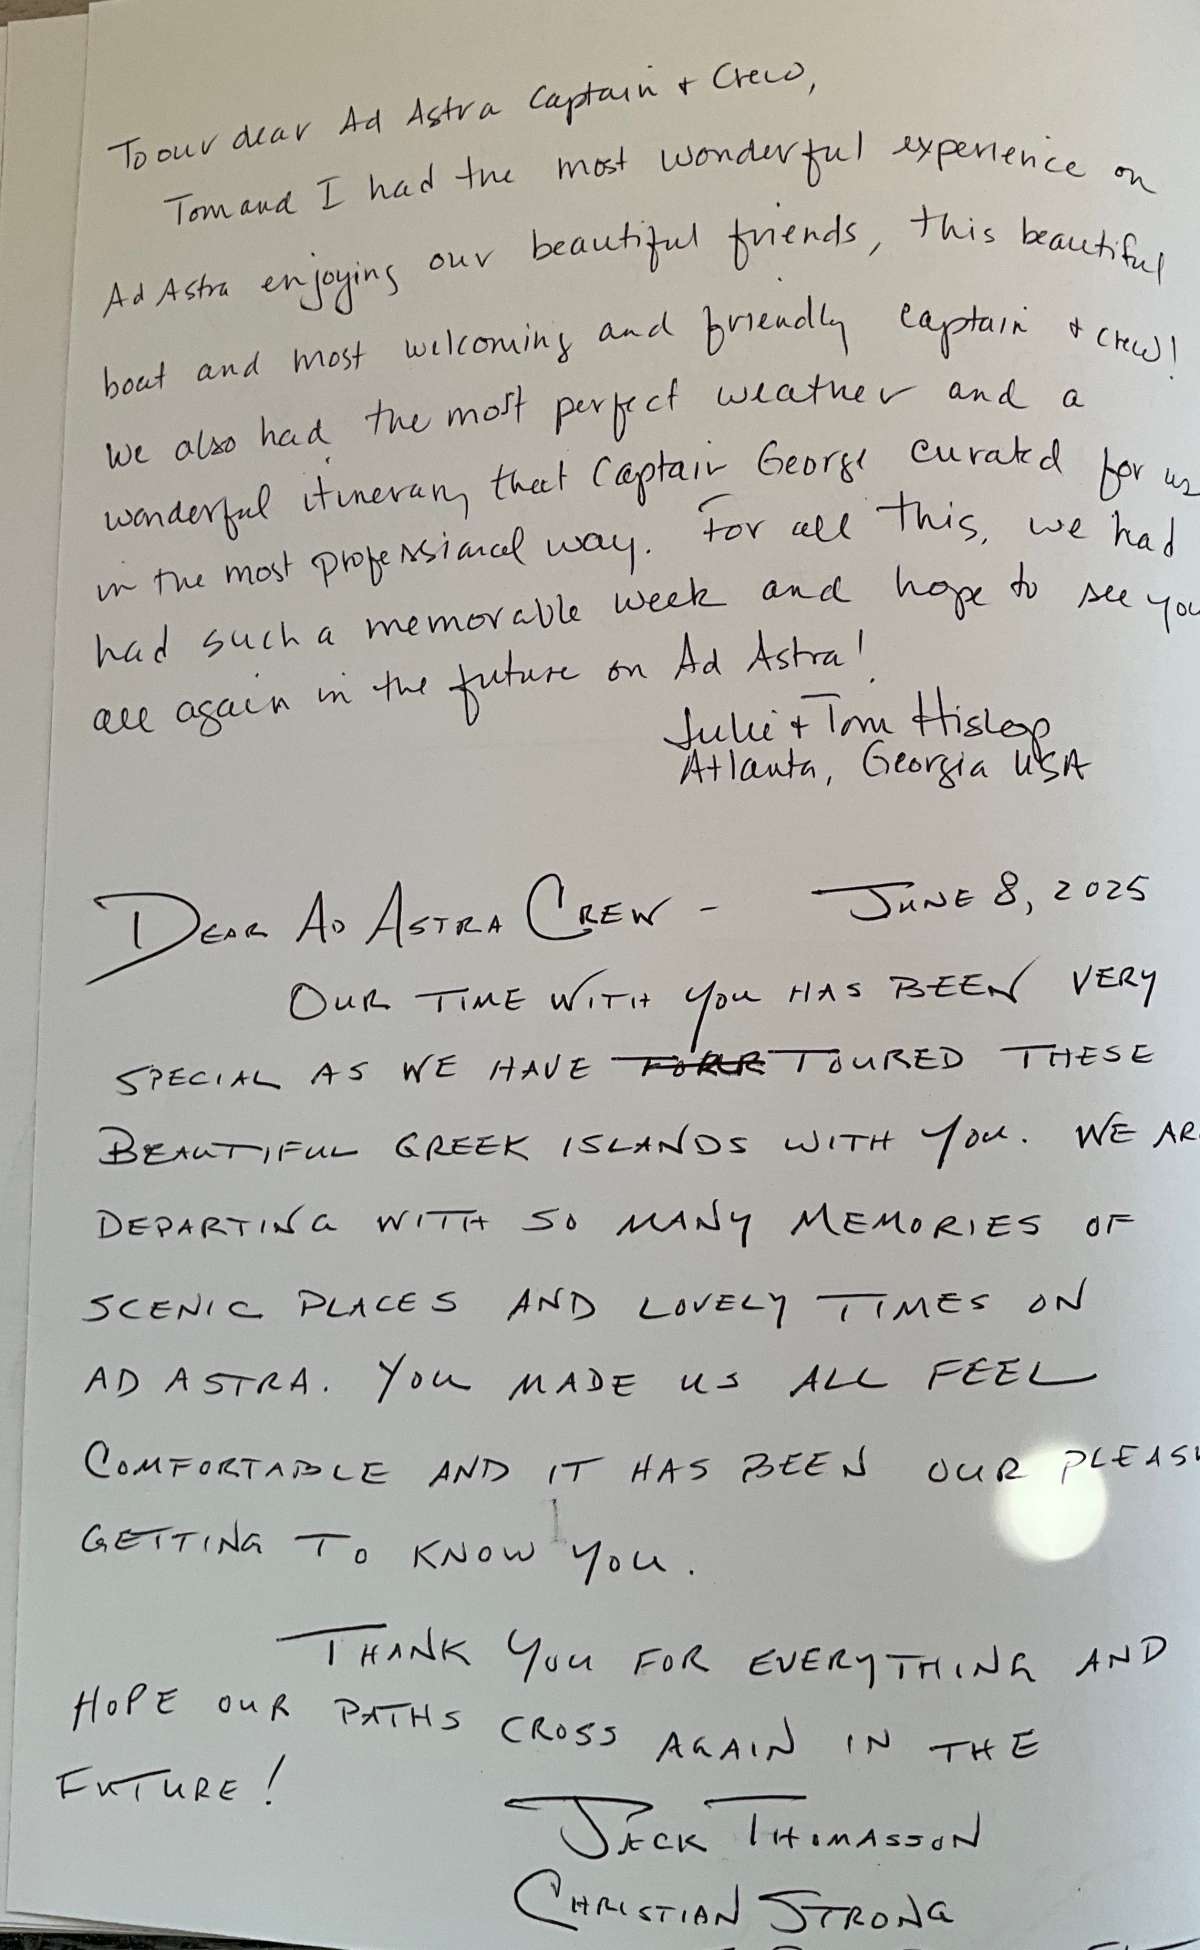 To our dear Ad Astra Captain + Crew,
Tom and I had the most wonderful experience on
Ad Astra enjoying our beautiful friends, this beautiful
boat and most welcoming and friendly captain + crew!
We also had the most perfect weather and a
wonderful itinerary that Captain George curated for us
in the most professional way. For all this, we had
had such a memorable week and hope to see you
all again in the future on Ad Astra!
Julie + Tom Hislop
Atlanta, Georgia USA
DEAR AD ASTRA CREW - JUNE 8, 2025
OUR TIME WITH YOU HAS BEEN VERY
SPECIAL AS WE HAVE TOURED THESE
BEAUTIFUL GREEK ISLANDS WITH YOU. WE AR
DEPARTING WITH SO MANY MEMORIES OF
SCENIC PLACES AND LOVELY TIMES ON
AD ASTRA. YOU MADE US ALL FEEL
COMFORTABLE AND IT HAS BEEN OUR PLEASU
GETTING TO KNOW YOU.
THANK YOU FOR EVERYTHING AND
HOPE OUR PATHS CROSS AGAIN IN THE
FUTURE!
JACK THOMASSON
CHRISTIAN STRONG